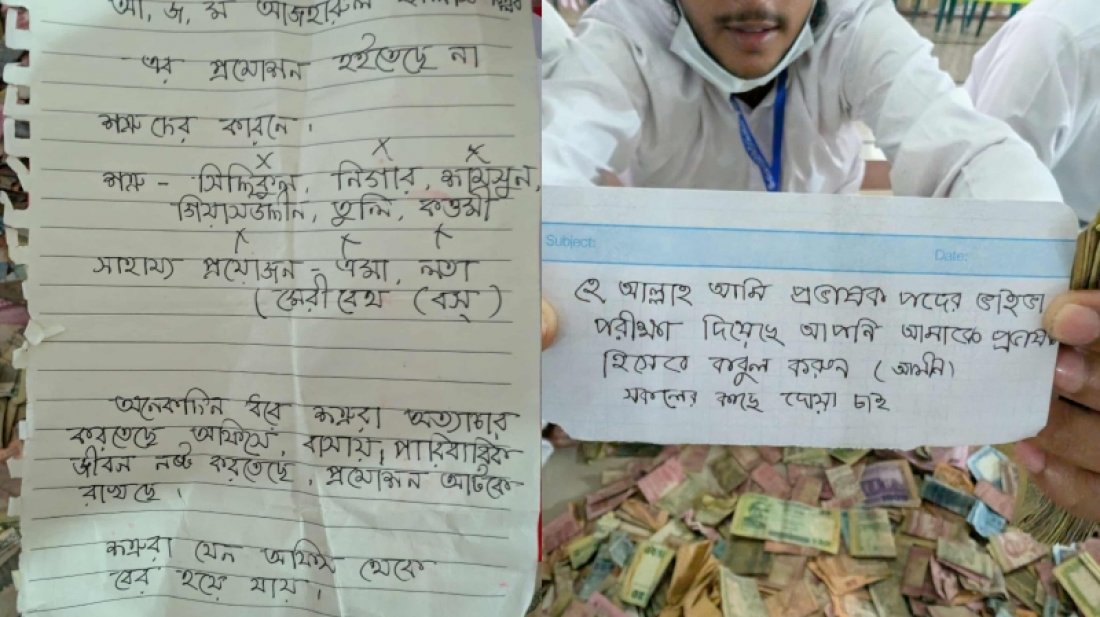 আ, জ, ম আজহারুল
এর প্রমোশন হইতেছে না
শত্রুদের কারনে।
শত্রু - সিদ্দিকুল, নিগার, মামুন,
গিয়াসউদ্দীন, তুলি, কওমী
সাহায্য প্রয়োজন - এমা, লতা
(মেরীবেথ (বস্)
অনেকদিন ধরে শত্রুরা অত্যাচার
করতেছে অফিসে, বাসায়, পারিবারিক
জীবন নষ্ট করতেছে, প্রমোশন আটকে
রাখছে।
শত্রুরা যেন অফিস থেকে
বের হয়ে যায়।
Subject:
Date:
হে আল্লাহ আমি প্রভাষক পদের ভাইভা
পরীক্ষা দিয়েছি আপনি আমাকে প্রভাষক
হিসেবে কবুল করুন (আমীন)
সকলের কাছে দোয়া চাই